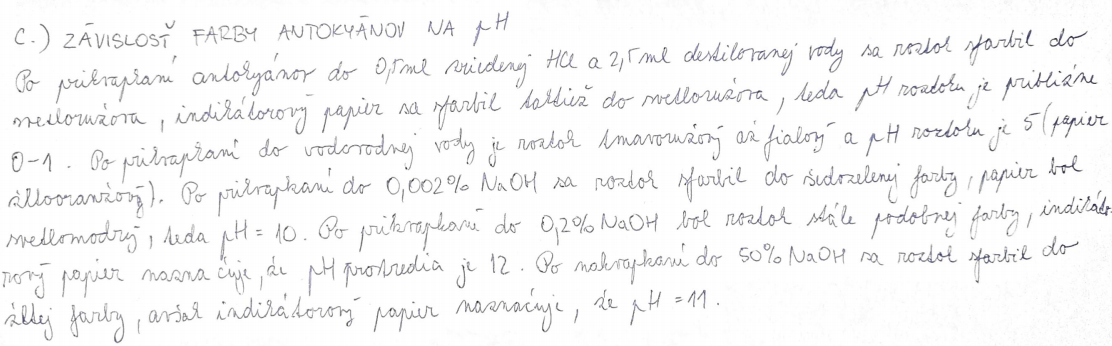 C.) ZÁVISLOSŤ FARBY ANTOKYÁNOV NA pH
Po prikvapkaní antokyánov do 0,5ml zriedenej HCl a 2,5ml destilovanej vody sa roztok sfarbil do
svetloružova, indikátorový papier sa sfarbil taktiež do svetloružova, teda pH roztoku je približne
0-1. Po prikvapkaní do vodovodnej vody je roztok tmavoružový až fialový a pH roztoku je 5 (papier
žltooranžový). Po prikvapkaní do 0,002% NaOH sa roztok sfarbil do šedozelenej farby, papier bol
svetlomodrý, teda pH = 10. Po prikvapkaní do 0,2% NaOH bol roztok stále podobnej farby, indikáto-
rový papier naznačuje, že pH prostredia je 12. Po nakvapkaní do 50% NaOH sa roztok sfarbil do
žltej farby, avšak indikátorový papier naznačuje, že pH = 11.